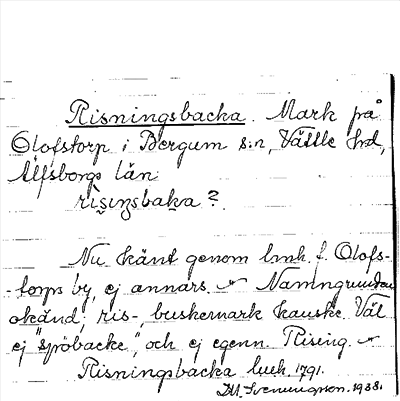 Risningsbacka. Mark på
Olofstorp i Bergum s:n, Vättle hd,
Älfsborgs län.
risiŋsbaka ?
Nu känt genom lmh. f. Olofs-
-torps by, ej annars. – Namngrunden
okänd, ris-, buskemark kanske. Väl
ej "spöbacke", och ej egenn. Rising. –
Risningsbacka lmh. 1791.
J.M. Svenningson. 1938.